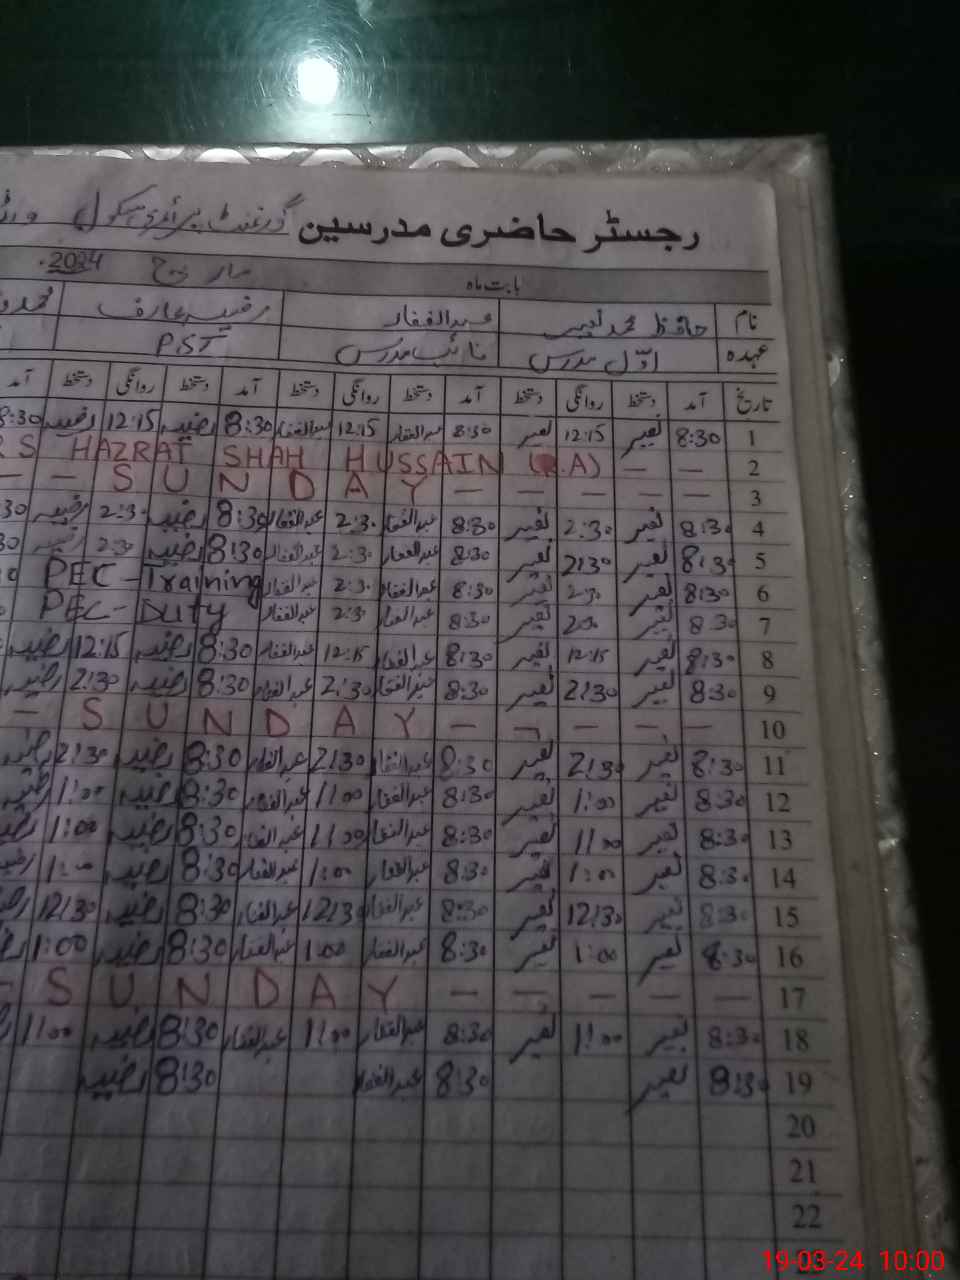 رجسٹر حاضری مدرسین گورنمنٹ پرائمری سکول
بابت ماہ مارچ 2024
نام حافظ محمد نصیر عبدالغفار رضیہ عارف محمد
عہدہ اوّل مدرس نائب مدرس PST
تاریخ آمد دستخط روانگی دستخط آمد دستخط روانگی دستخط آمد دستخط روانگی دستخط آمد
1 8:30 نصیر 12:15 نصیر 8:30 عبدالغفار 12:15 عبدالغفار 8:30 رضیہ 12:15 رضیہ 8:30
2 — — RS HAZRAT SHAH HUSSAIN (R.A)
3 — — — — — SUNDAY — —
4 8:30 نصیر 2:30 نصیر 8:30 عبدالغفار 2:30 عبدالغفار 8:30 رضیہ 2:30 رضیہ 30
5 8:30 نصیر 2:30 نصیر 8:30 عبدالغفار 2:30 عبدالغفار 8:30 رضیہ 2:30 رضیہ 30
6 8:30 نصیر 2:30 نصیر 8:30 عبدالغفار 2:30 عبدالغفار PEC-Training
7 8:30 نصیر 2:30 نصیر 8:30 عبدالغفار 2:30 عبدالغفار PEC-Duty
8 8:30 نصیر 12:15 نصیر 8:30 عبدالغفار 12:15 عبدالغفار 8:30 رضیہ 12:15 رضیہ
9 8:30 نصیر 2:30 نصیر 8:30 عبدالغفار 2:30 عبدالغفار 8:30 رضیہ 2:30 رضیہ
10 — — — — — SUNDAY —
11 8:30 نصیر 2:30 نصیر 8:30 عبدالغفار 2:30 عبدالغفار 8:30 رضیہ 2:30 رضیہ
12 8:30 نصیر 1:00 نصیر 8:30 عبدالغفار 1:00 عبدالغفار 8:30 رضیہ 1:00 رضیہ
13 8:30 نصیر 1:00 نصیر 8:30 عبدالغفار 1:00 عبدالغفار 8:30 رضیہ 1:00 رضیہ
14 8:30 نصیر 1:00 نصیر 8:30 عبدالغفار 1:00 عبدالغفار 8:30 رضیہ 1:00 رضیہ
15 8:30 نصیر 12:30 نصیر 8:30 عبدالغفار 12:30 عبدالغفار 8:30 رضیہ 12:30 رضیہ
16 8:30 نصیر 1:00 نصیر 8:30 عبدالغفار 1:00 عبدالغفار 8:30 رضیہ 1:00 رضیہ
17 — — — — — SUNDAY —
18 8:30 نصیر 1:00 نصیر 8:30 عبدالغفار 1:00 عبدالغفار 8:30 رضیہ 1:00
19 8:30 نصیر 8:30 عبدالغفار 8:30 رضیہ
20
21
22
19-03-24 10:00